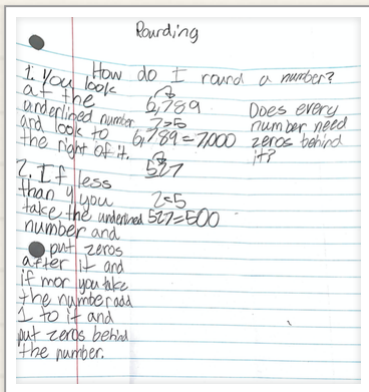 Rounding
How do I round a number?
1. You look
at the
underlined number
and look to
the right of it.
2. If less
than 4 you
take the underlined
number and
put zeros
after it and
if mor you take
the number add
1 to it and
put zeros behind
the number.
6,789
7≥5
6,789=7,000
527
2<5
527=500
Does every
number need
zeros behind
it?